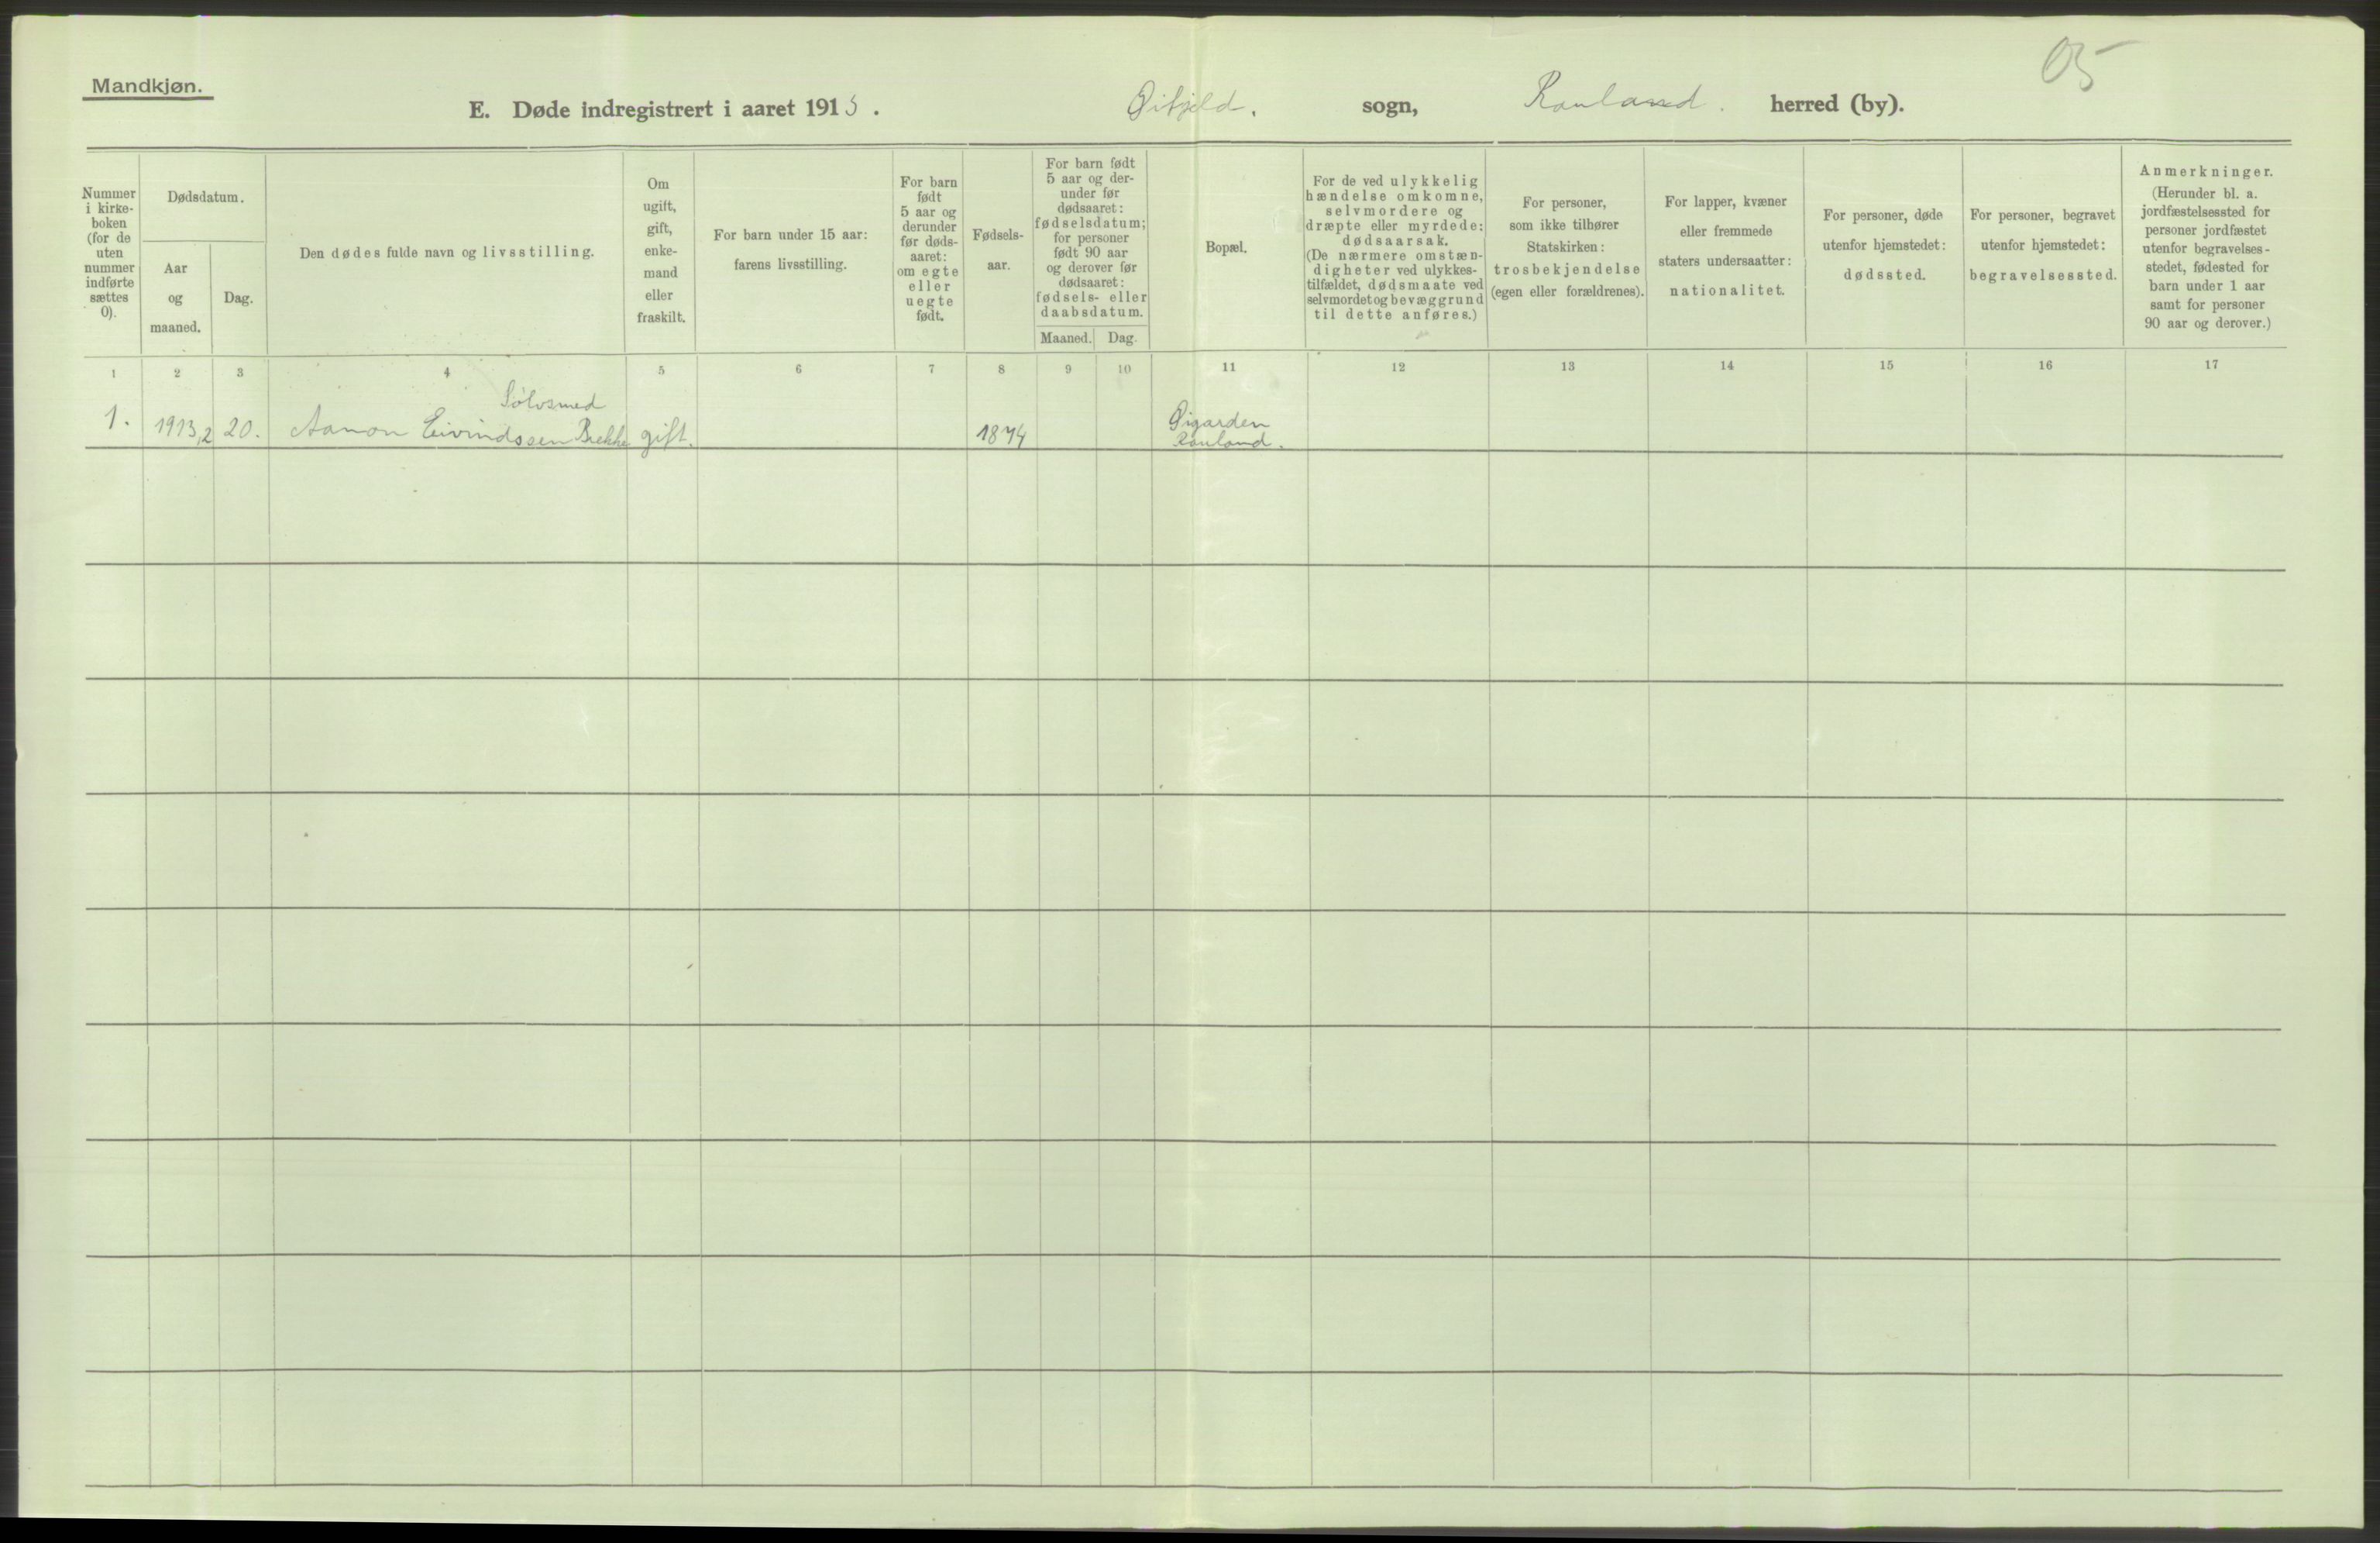 05
Mandkjøn.
E. Døde indregistrert i aaret 1913. Øifjeld. sogn, Rauland. herred (by).
Nummer
i kirke-
boken
(for de
uten
nummer
indførte
sættes
0).
Dødsdatum.
Aar
og
maaned.
Dag.
Den dødes fulde navn og livsstilling.
Om
ugift,
gift,
enke-
mand
eller
fraskilt.
For barn under 15 aar:
farens livsstilling.
For barn
født
5 aar og
derunder
før døds-
aaret:
om egte
eller
uegte
født.
Fødsels-
aar.
For barn født
5 aar og der-
under før
dødsaaret:
fødselsdatum;
for personer
født 90 aar
og derover før
dødsaaret:
fødsels- eller
daabsdatum.
Maaned. Dag.
Bopæl.
For de ved ulykkelig
hændelse omkomne,
selvmordere og
dræpte eller myrdede:
dødsaarsak.
(De nærmere omstæn-
digheter ved ulykkes-
tilfældet, dødsmaate ved
selvmordet og bevæggrund
til dette anføres.)
For personer,
som ikke tilhører
Statskirken:
trosbekjendelse
(egen eller forældrenes).
For lapper, kvæner
eller fremmede
staters undersaatter:
nationalitet.
For personer, døde
utenfor hjemstedet:
dødssted.
For personer, begravet
utenfor hjemstedet:
begravelsessted.
Anmerkninger.
(Herunder bl. a.
jordfæstelsessted for
personer jordfæstet
utenfor begravelses-
stedet, fødested for
barn under 1 aar
samt for personer
90 aar og derover.)
1 2 3 4 5 6 7 8 9 10 11 12 13 14 15 16 17
Sølvsmed
1. 1913,2 20. Aanon Eivindssen Bekhe gift. 1874 Øigarden
Rauland.